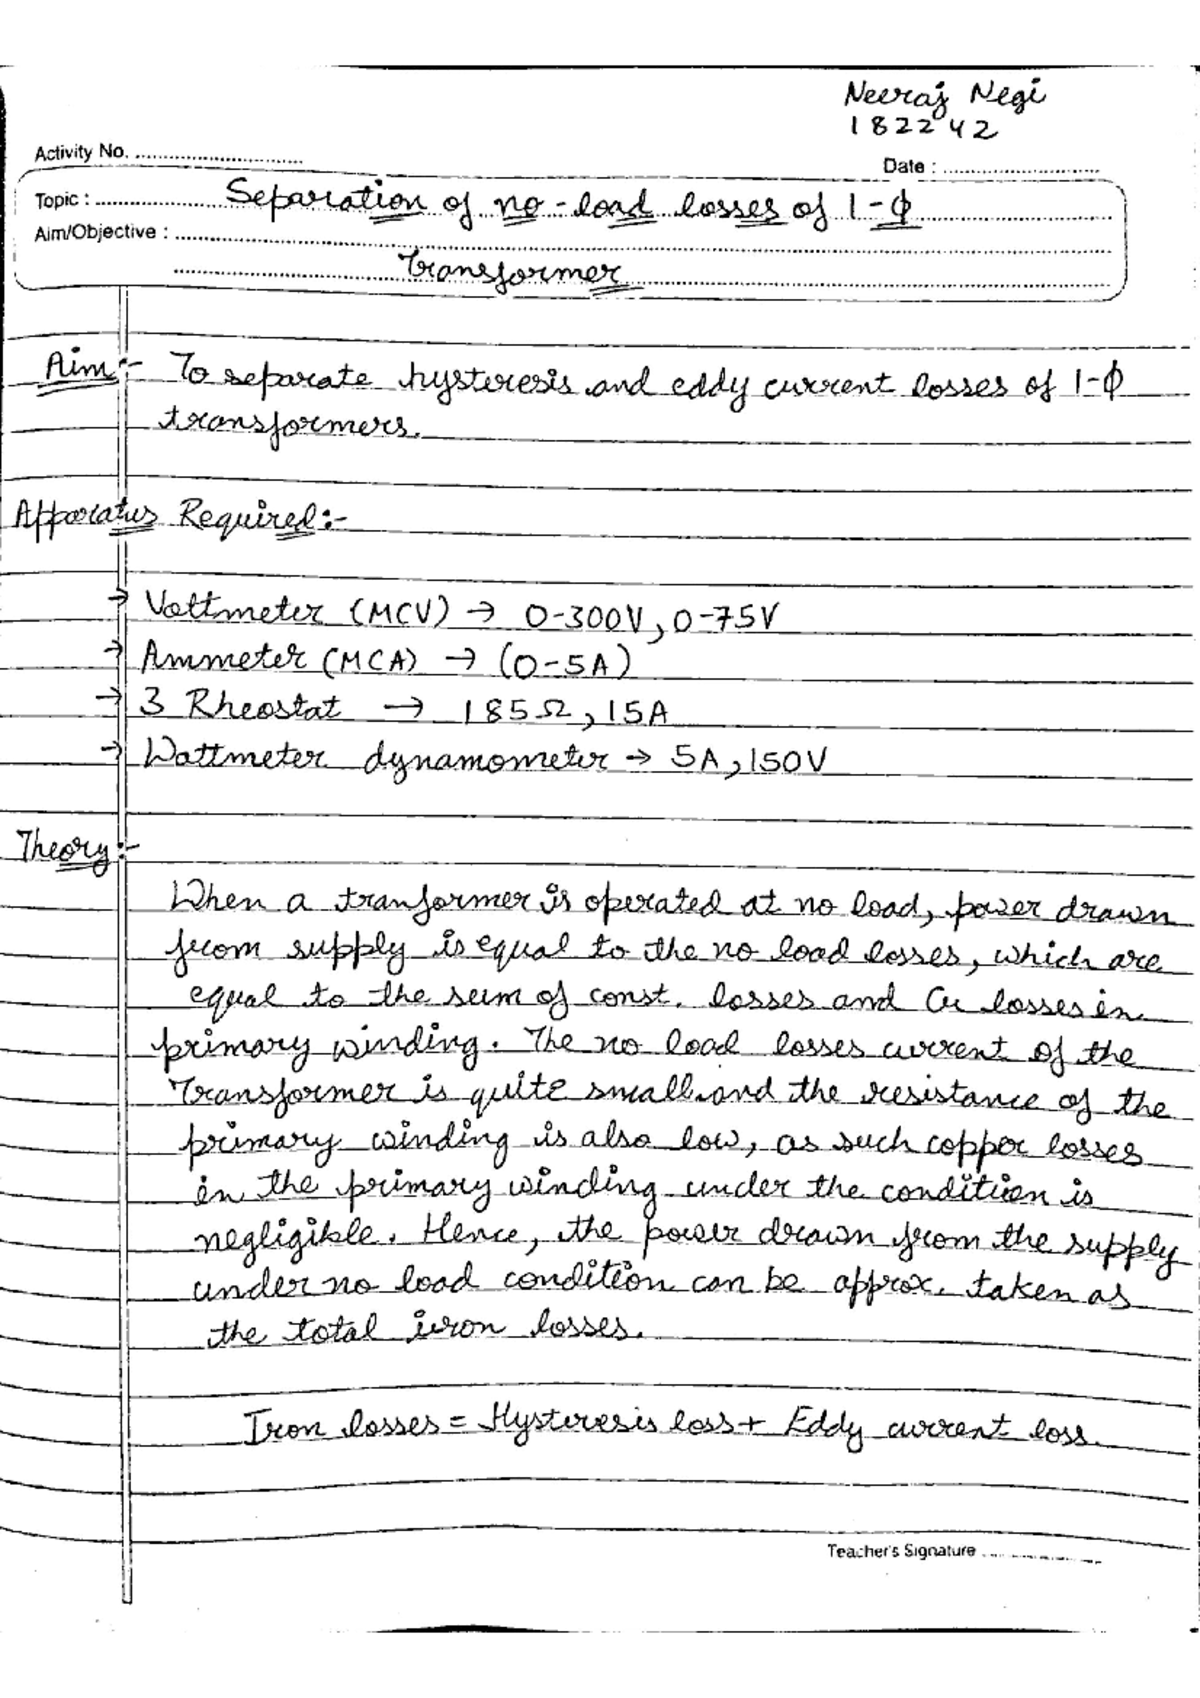 Neeraj Negi
182242
Activity No. ..............................
Date : ..............................
Topic : Separation of no-load losses of 1-Φ
Aim/Objective :
Transformer
Aim:- To separate hysteresis and eddy current losses of 1-Φ
transformers.
Apparatus Required:-
→ Voltmeter (MCV) → 0-300V, 0-75V
→ Ammeter (MCA) → (0-5A)
→ 3 Rheostat → 185Ω, 15A
→ Wattmeter dynamometer → 5A, 150V
Theory:-
When a tranformer is operated at no load, power drawn
from supply is equal to the no load losses, which are
equal to the sum of const. losses and Cu losses in
primary winding. The no load losses current of the
Transformer is quite small and the resistance of the
primary winding is also low, as such copper losses
in the primary winding under the condition is
negligible. Hence, the power drawn from the supply
under no load condition can be approx. taken as
the total iron losses.
Iron losses = Hysteresis loss + Eddy current loss.
Teacher's Signature ..............................